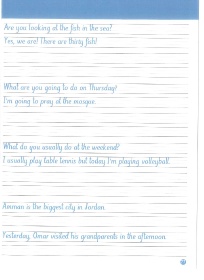 Are you looking at the fish in the sea?
Yes, we are! There are thirty fish!
What are you going to do on Thursday?
I'm going to pray at the mosque.
What do you usually do at the weekend?
I usually play table tennis but today I'm playing volleyball.
Amman is the biggest city in Jordan.
Yesterday, Omar visited his grandparents in the afternoon.